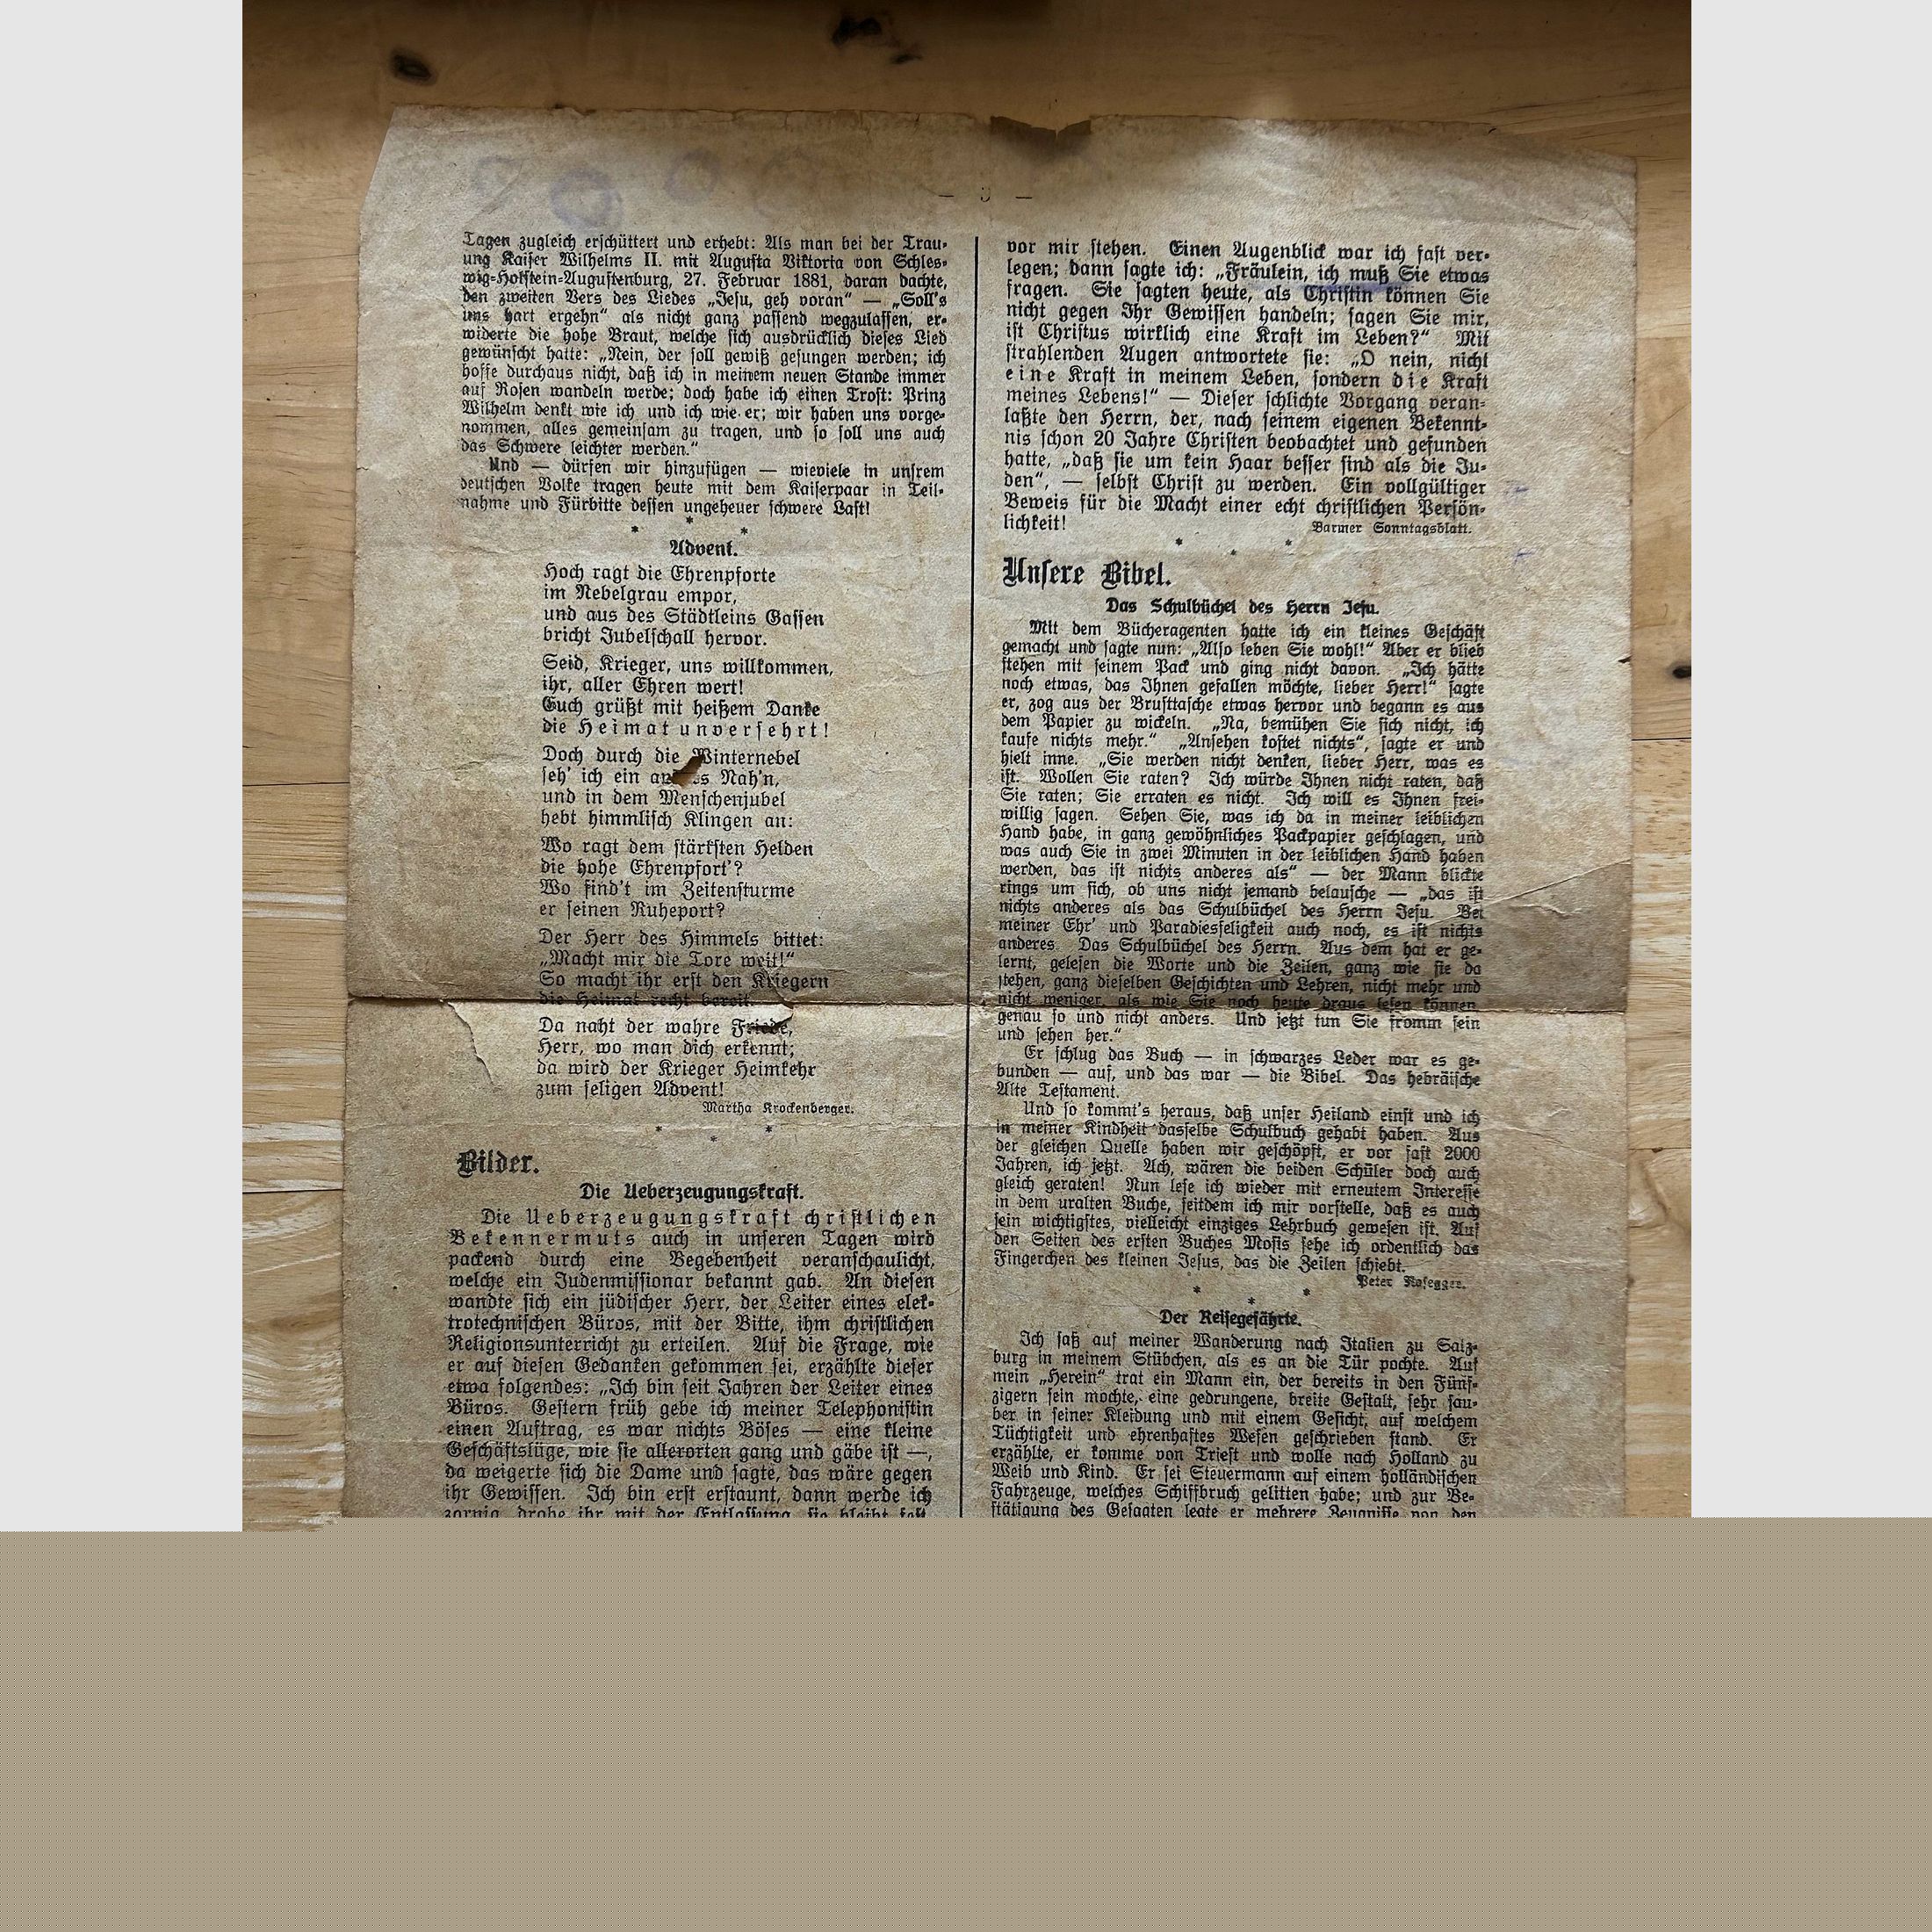 — 3 —
Tagen zugleich erschüttert und erhebt: Als man bei der Trau-
ung Kaiser Wilhelms II. mit Augusta Viktoria von Schles-
wig-Holstein-Augustenburg, 27. Februar 1881, daran dachte,
den zweiten Vers des Liedes „Jesu, geh voran“ — „Soll's
uns hart ergehn“ als nicht ganz passend wegzulassen, er-
widerte die hohe Braut, welche sich ausdrücklich dieses Lied
gewünscht hatte: „Nein, der soll gewiß gesungen werden; ich
hoffe durchaus nicht, daß ich in meinem neuen Stande immer
auf Rosen wandeln werde; doch habe ich einen Trost: Prinz
Wilhelm denkt wie ich und ich wie er; wir haben uns vorge-
nommen, alles gemeinsam zu tragen, und so soll uns auch
das Schwere leichter werden.“
Und — dürfen wir hinzufügen — wieviele in unsrem
deutschen Volke tragen heute mit dem Kaiserpaar in Teil-
nahme und Fürbitte dessen ungeheuer schwere Last!
* * *
Advent.
Hoch ragt die Ehrenpforte
im Nebelgrau empor,
und aus des Städtleins Gassen
bricht Jubelschall hervor.
Seid, Krieger, uns willkommen,
ihr, aller Ehren wert!
Euch grüßt mit heißem Danke
die Heimat unversehrt!
Doch durch die Winternebel
seh' ich ein Nah'n,
und in dem Menschenjubel
hebt himmlisch Klingen an:
Wo ragt dem stärksten Helden
die hohe Ehrenpfort'?
Wo find't im Zeitensturme
er seinen Ruheport?
Der Herr des Himmels bittet:
„Macht mir die Tore weit!“
So macht ihr erst den Kriegern
die Heimat recht bereit.
Da naht der wahre Friede,
Herr, wo man dich erkennt;
da wird der Krieger Heimkehr
zum seligen Advent!
Martha Krockenberger.
* * *
Bilder.
Die Ueberzeugungskraft.
Die Ueberzeugungskraft christlichen
Bekennermuts auch in unseren Tagen wird
packend durch eine Begebenheit veranschaulicht,
welche ein Judenmissionar bekannt gab. An diesen
wandte sich ein jüdischer Herr, der Leiter eines elek-
trotechnischen Büros, mit der Bitte, ihm christlichen
Religionsunterricht zu erteilen. Auf die Frage, wie
er auf diesen Gedanken gekommen sei, erzählte dieser
etwa folgendes: „Ich bin seit Jahren der Leiter eines
Büros. Gestern früh gebe ich meiner Telephonistin
einen Auftrag, es war nichts Böses — eine kleine
Geschäftslüge, wie sie allerorten gang und gäbe ist —,
da weigerte sich die Dame und sagte, das wäre gegen
ihr Gewissen. Ich bin erst erstaunt, dann werde ich
zornig, drohe ihr mit der Entlassung, sie bleibt fest.
vor mir stehen. Einen Augenblick war ich fast ver-
legen; dann sagte ich: „Fräulein, ich muß Sie etwas
fragen. Sie sagten heute, als Christin können Sie
nicht gegen Ihr Gewissen handeln; sagen Sie mir,
ist Christus wirklich eine Kraft im Leben?“ Mit
strahlenden Augen antwortete sie: „O nein, nicht
eine Kraft in meinem Leben, sondern die Kraft
meines Lebens!“ — Dieser schlichte Vorgang veran-
laßte den Herrn, der, nach seinem eigenen Bekennt-
nis schon 20 Jahre Christen beobachtet und gefunden
hatte, „daß sie um kein Haar besser sind als die Ju-
den“, — selbst Christ zu werden. Ein vollgültiger
Beweis für die Macht einer echt christlichen Persön-
lichkeit!
Barmer Sonntagsblatt.
* * *
Unsere Bibel.
Das Schulbüchel des Herrn Jesu.
Mit dem Bücheragenten hatte ich ein kleines Geschäft
gemacht und sagte nun: „Also leben Sie wohl!“ Aber er blieb
stehen mit seinem Pack und ging nicht davon. „Ich hätte
noch etwas, das Ihnen gefallen möchte, lieber Herr!“ sagte
er, zog aus der Brusttasche etwas hervor und begann es aus
dem Papier zu wickeln. „Na, bemühen Sie sich nicht, ich
kaufe nichts mehr.“ „Ansehen kostet nichts“, sagte er und
hielt inne. „Sie werden nicht denken, lieber Herr, was es
ist. Wollen Sie raten? Ich würde Ihnen nicht raten, daß
Sie raten; Sie erraten es nicht. Ich will es Ihnen frei-
willig sagen. Sehen Sie, was ich da in meiner leiblichen
Hand habe, in ganz gewöhnliches Packpapier geschlagen, und
was auch Sie in zwei Minuten in der leiblichen Hand haben
werden, das ist nichts anderes als“ — der Mann blickte
rings um sich, ob uns nicht jemand belausche — „das ist
nichts anderes als das Schulbüchel des Herrn Jesu. Bei
meiner Ehr' und Paradiesseligkeit auch noch, es ist nichts
anderes. Das Schulbüchel des Herrn. Aus dem hat er ge-
lernt, gelesen die Worte und die Zeilen, ganz wie sie da
stehen, ganz dieselben Geschichten und Lehren, nicht mehr und
nicht weniger, als wie Sie noch heute draus lesen können,
genau so und nicht anders. Und jetzt tun Sie fromm sein
und sehen her.“
Er schlug das Buch — in schwarzes Leder war es ge-
bunden — auf, und das war — die Bibel. Das hebräische
Alte Testament.
Und so kommt's heraus, daß unser Heiland einst und ich
in meiner Kindheit dasselbe Schulbuch gehabt haben. Aus
der gleichen Quelle haben wir geschöpft, er vor fast 2000
Jahren, ich jetzt. Ach, wären die beiden Schüler doch auch
gleich geraten! Nun lese ich wieder mit erneutem Interesse
in dem uralten Buche, seitdem ich mir vorstelle, daß es auch
sein wichtigstes, vielleicht einziges Lehrbuch gewesen ist. Auf
den Seiten des ersten Buches Mosis sehe ich ordentlich das
Fingerchen des kleinen Jesus, das die Zeilen schiebt.
Peter Rosegger.
* * *
Der Reisegefährte.
Ich saß auf meiner Wanderung nach Italien zu Salz-
burg in meinem Stübchen, als es an die Tür pochte. Auf
mein „Herein“ trat ein Mann ein, der bereits in den Fünf-
zigern sein mochte, eine gedrungene, breite Gestalt, sehr sau-
ber in seiner Kleidung und mit einem Gesicht, auf welchem
Tüchtigkeit und ehrenhaftes Wesen geschrieben stand. Er
erzählte, er komme von Triest und wolle nach Holland zu
Weib und Kind. Er sei Steuermann auf einem holländischen
Fahrzeuge, welches Schiffbruch gelitten habe; und zur Be-
stätigung des Gesagten legte er mehrere Zeugnisse von den